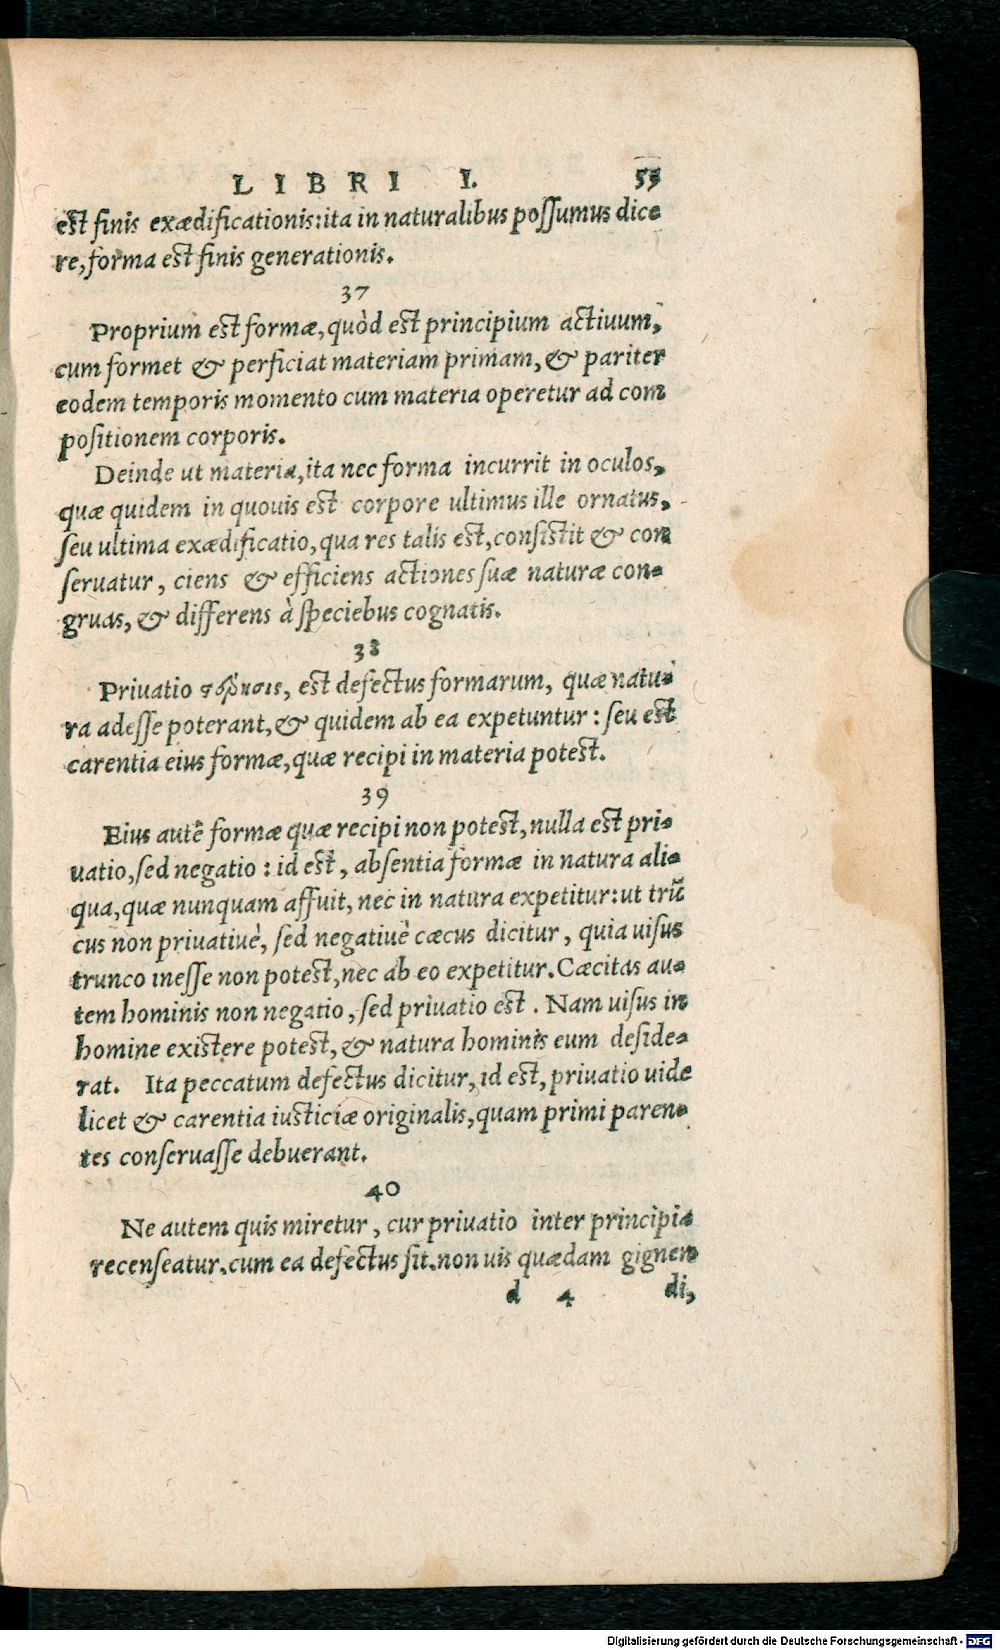 LIBRI I. 55
est finis exædificationis: ita in naturalibus possumus dice
re, forma est finis generationis.
37
Proprium est formæ, quòd est principium actiuum,
cum formet & perficiat materiam primam, & pariter
eodem temporis momento cum materia operetur ad com
positionem corporis.
Deinde ut materia, ita nec forma incurrit in oculos,
quæ quidem in quouis est corpore ultimus ille ornatus,
seu ultima exædificatio, qua res talis est, consistit & con
seruatur, ciens & efficiens actiones suæ naturæ con-
gruas, & differens à speciebus cognatis.
38
Priuatio στέρησις, est defectus formarum, quæ natu-
ra adesse poterant, & quidem ab ea expetuntur: seu est
carentia eius formæ, quæ recipi in materia potest.
39
Eius autē formæ quæ recipi non potest, nulla est pri-
uatio, sed negatio: id est, absentia formæ in natura ali-
qua, quæ nunquam affuit, nec in natura expetitur: ut trū
cus non priuatiuè, sed negatiuè cæcus dicitur, quia uisus
trunco inesse non potest, nec ab eo expetitur. Cæcitas au-
tem hominis non negatio, sed priuatio est. Nam uisus in
homine existere potest, & natura hominis eum deside-
rat. Ita peccatum defectus dicitur, id est, priuatio uide
licet & carentia iusticiæ originalis, quam primi paren-
tes conseruasse debuerant.
40
Ne autem quis miretur, cur priuatio inter principia
recenseatur, cum ea defectus sit, non uis quædam gignen
d 4 di,
Digitalisierung gefördert durch die Deutsche Forschungsgemeinschaft - DFG